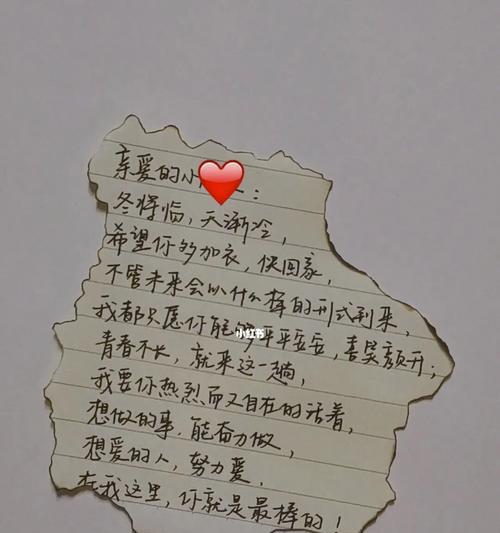 亲爱的小:
冬将临，天渐冷，
希望你多加衣，快回家，
不管未来会以什么样的形式到来，
我都只愿你能够平平安安，喜笑颜开；
青春不长，就来这一趟，
我要你热烈而又自在的活着，
想做的事，能奋力做，
想爱的人，努力爱，
在我这里，你就是最棒的！
小红书